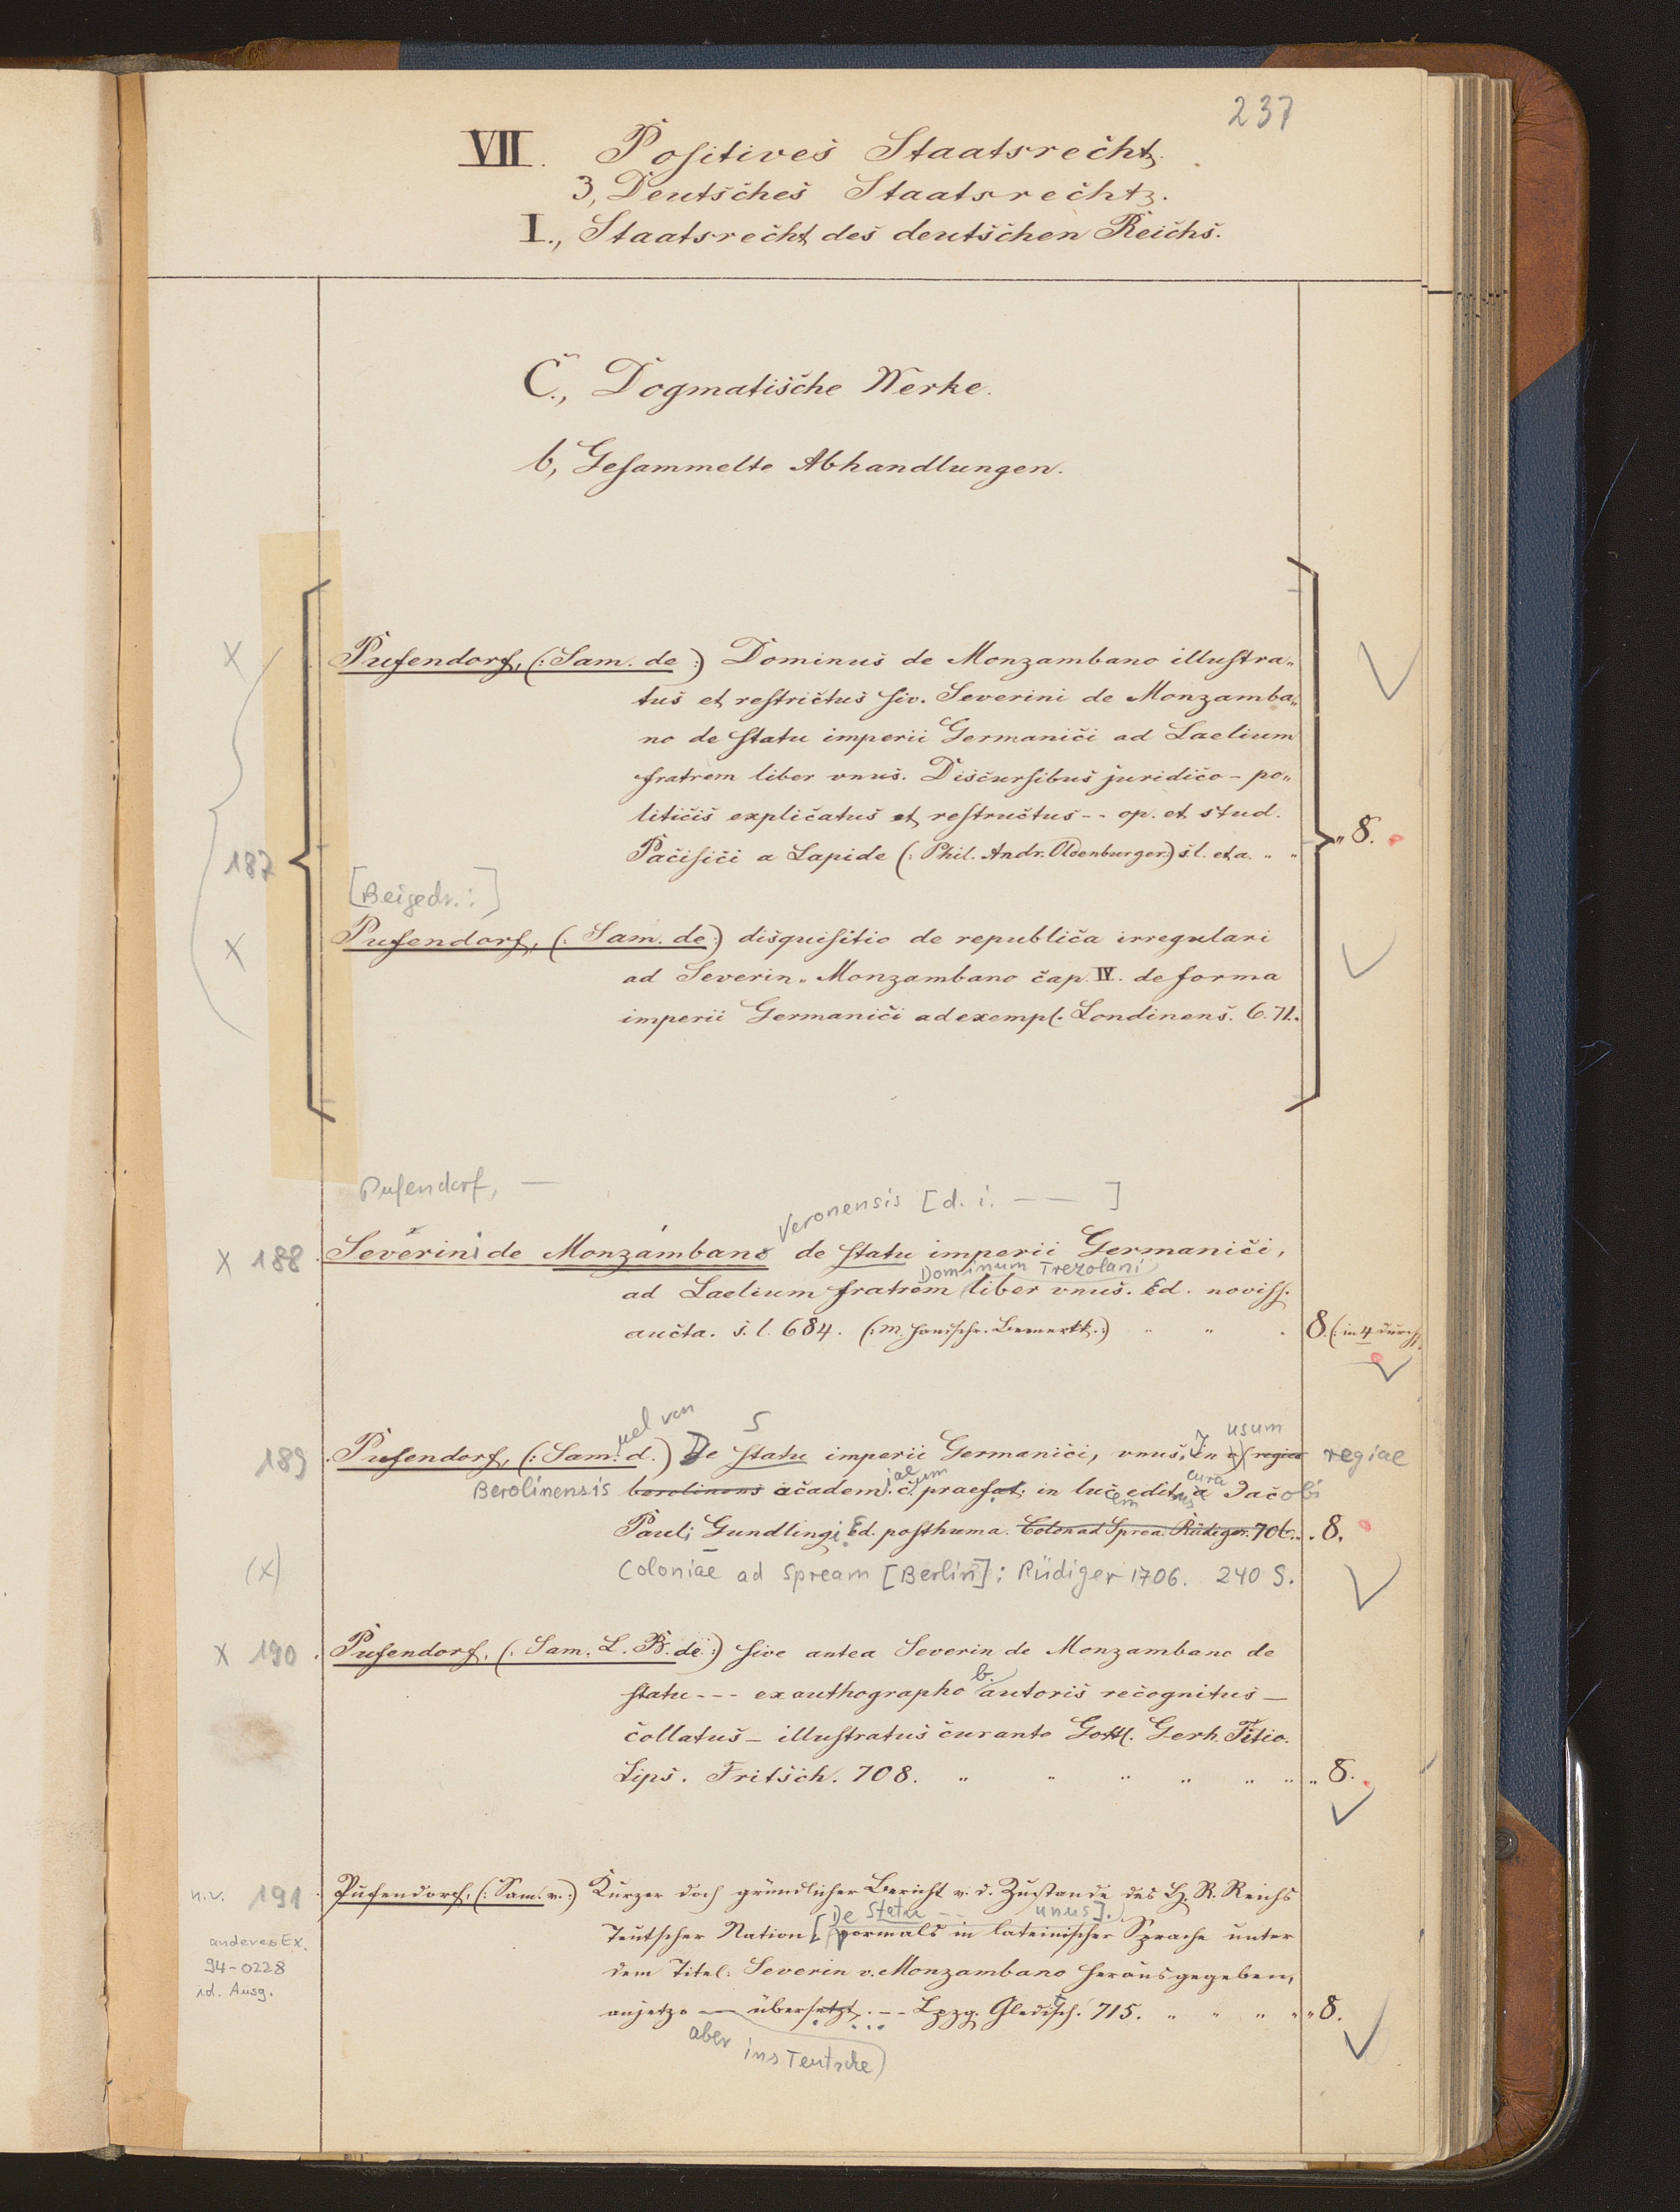 237
VII. Positives Staatsrecht.
3, Deutsches Staatsrecht.
I., Staatsrecht des deutschen Reichs.
C., Dogmatische Werke.
b, Gesammelte Abhandlungen.
X Pufendorf, (: Sam. de :) Dominus de Monzambano illustra„
tus et restrictus siv. Severini de Monzamba„
no de statu imperii Germanici ad Laelium
fratrem liber vnus. Discursibus juridico - po„
liticis explicatus et restructus - - op. et stud.
187 Pacifici a Lapide (: Phil. Andr. Oldenburger.) s. l. et a. " " " 8.
[Beigedr.:]
X Pufendorf, (: Sam. de :) disquisitio de republica irregulari
ad Severin. Monzambano cap. IV. de forma
imperii Germanici ad exempl. Londinens. 671.
Pufendorf, —
Veronensis [d. i. — — ]
X 188. Severini de Monzambano de statu imperii Germanici,
Dominum Trezolani
ad Laelium fratrem liber vnus. Ed. noviss.
aucta. s. l. 684. (: m. handschr. Bemerkk. :) " " " 8. (: in 4 durchsch.
uel von S usum
189. Pufendorf, (: Sam. d.) De statu imperii Germanici, vnus, In regiae regiae
iae um cura
Berolinensis berolinens academ. c. praefat. in luc. edit. a Jacobi
em us
Pauli Gundlingi Ed. posthuma. Colon ad Sprea. Rüdiger. 706. . . 8.
(x) Coloniae ad Spream [Berlin]: Rüdiger 1706. 240 S.
X 190. Pufendorf, (: Sam. L. B. de :) sive antea Severin de Monzambano de
b.
statu - - - ex authographo autoris recognitus —
collatus — illustratus curante Gottl. Gerh. Titio.
Lips. Fritsch. 708. " " " " " " " 8.
n.v. 191. Pufendorf, (: Sam. v. :) Kurzer doch gründlicher Bericht v. d. Zustande des H. R. Reichs
De Statu - - unus].
Teutscher Nation [vormals in lateinischer Sprache unter
anderes Ex.
94-0228
id. Ausg.
dem Titel: Severin v. Monzambano herausgegeben,
anjetzo — übersetzt. - - Lpzg. Gleditsch. 715. " " " " " 8.
aber ins Teutsche)